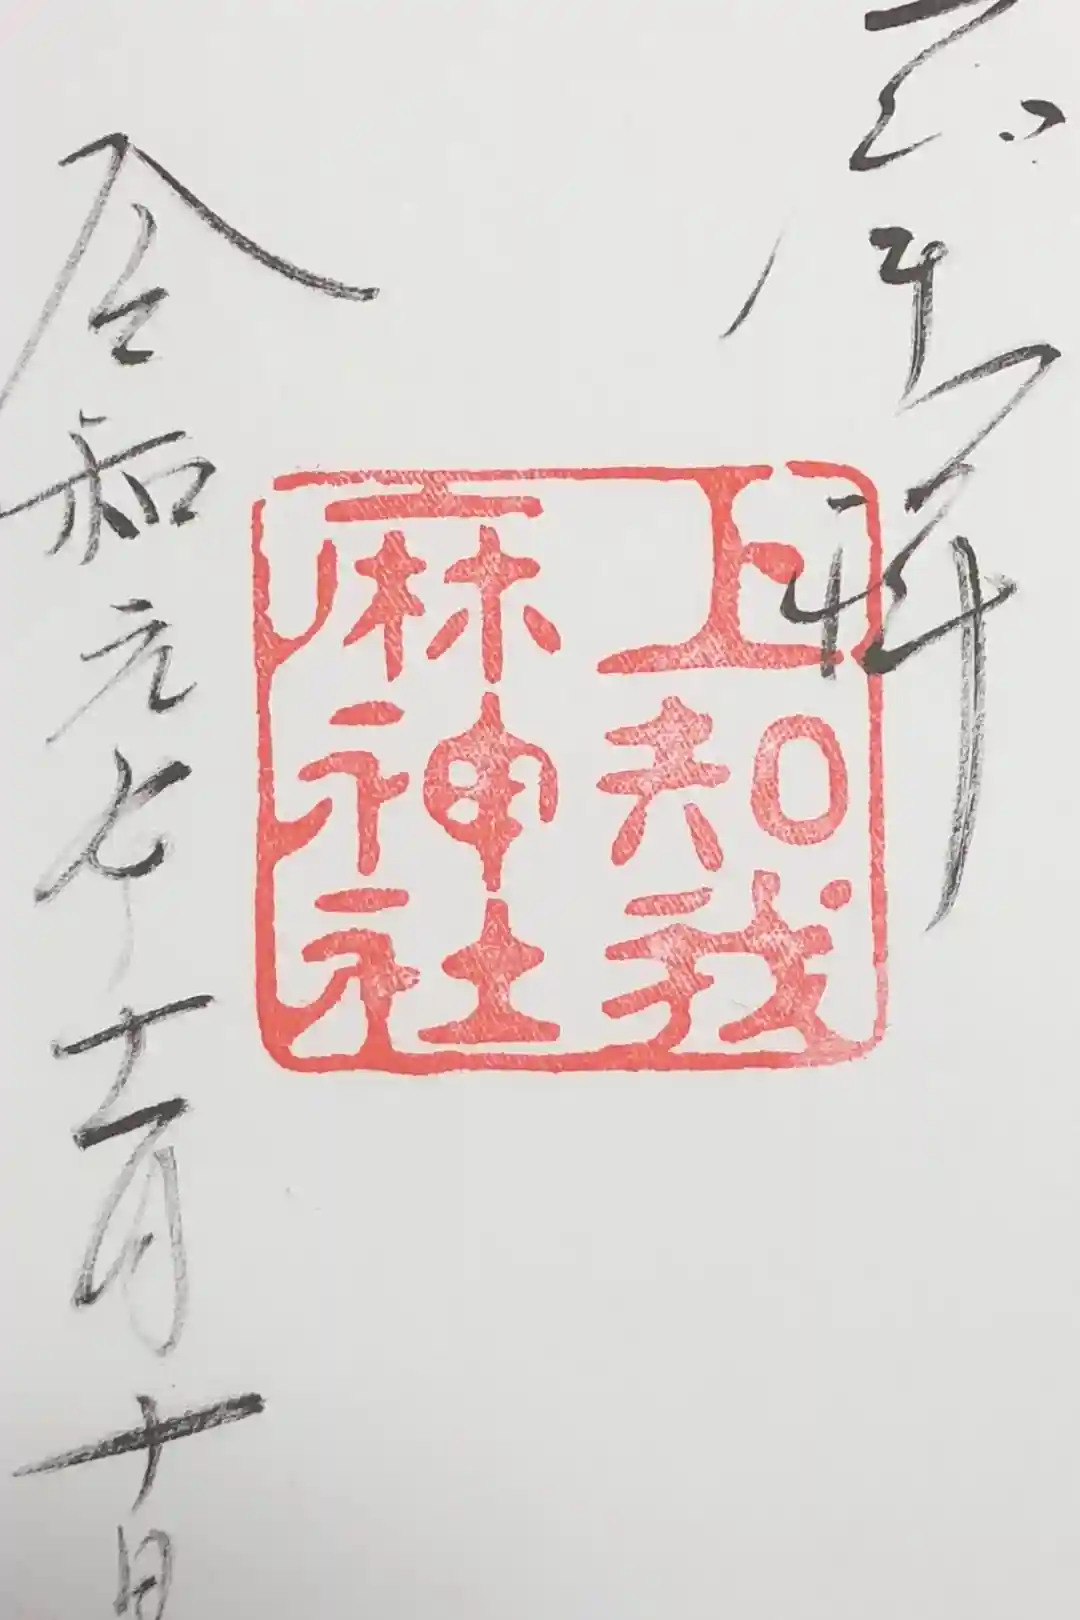 上知我
麻神社
令和元年十一月十日